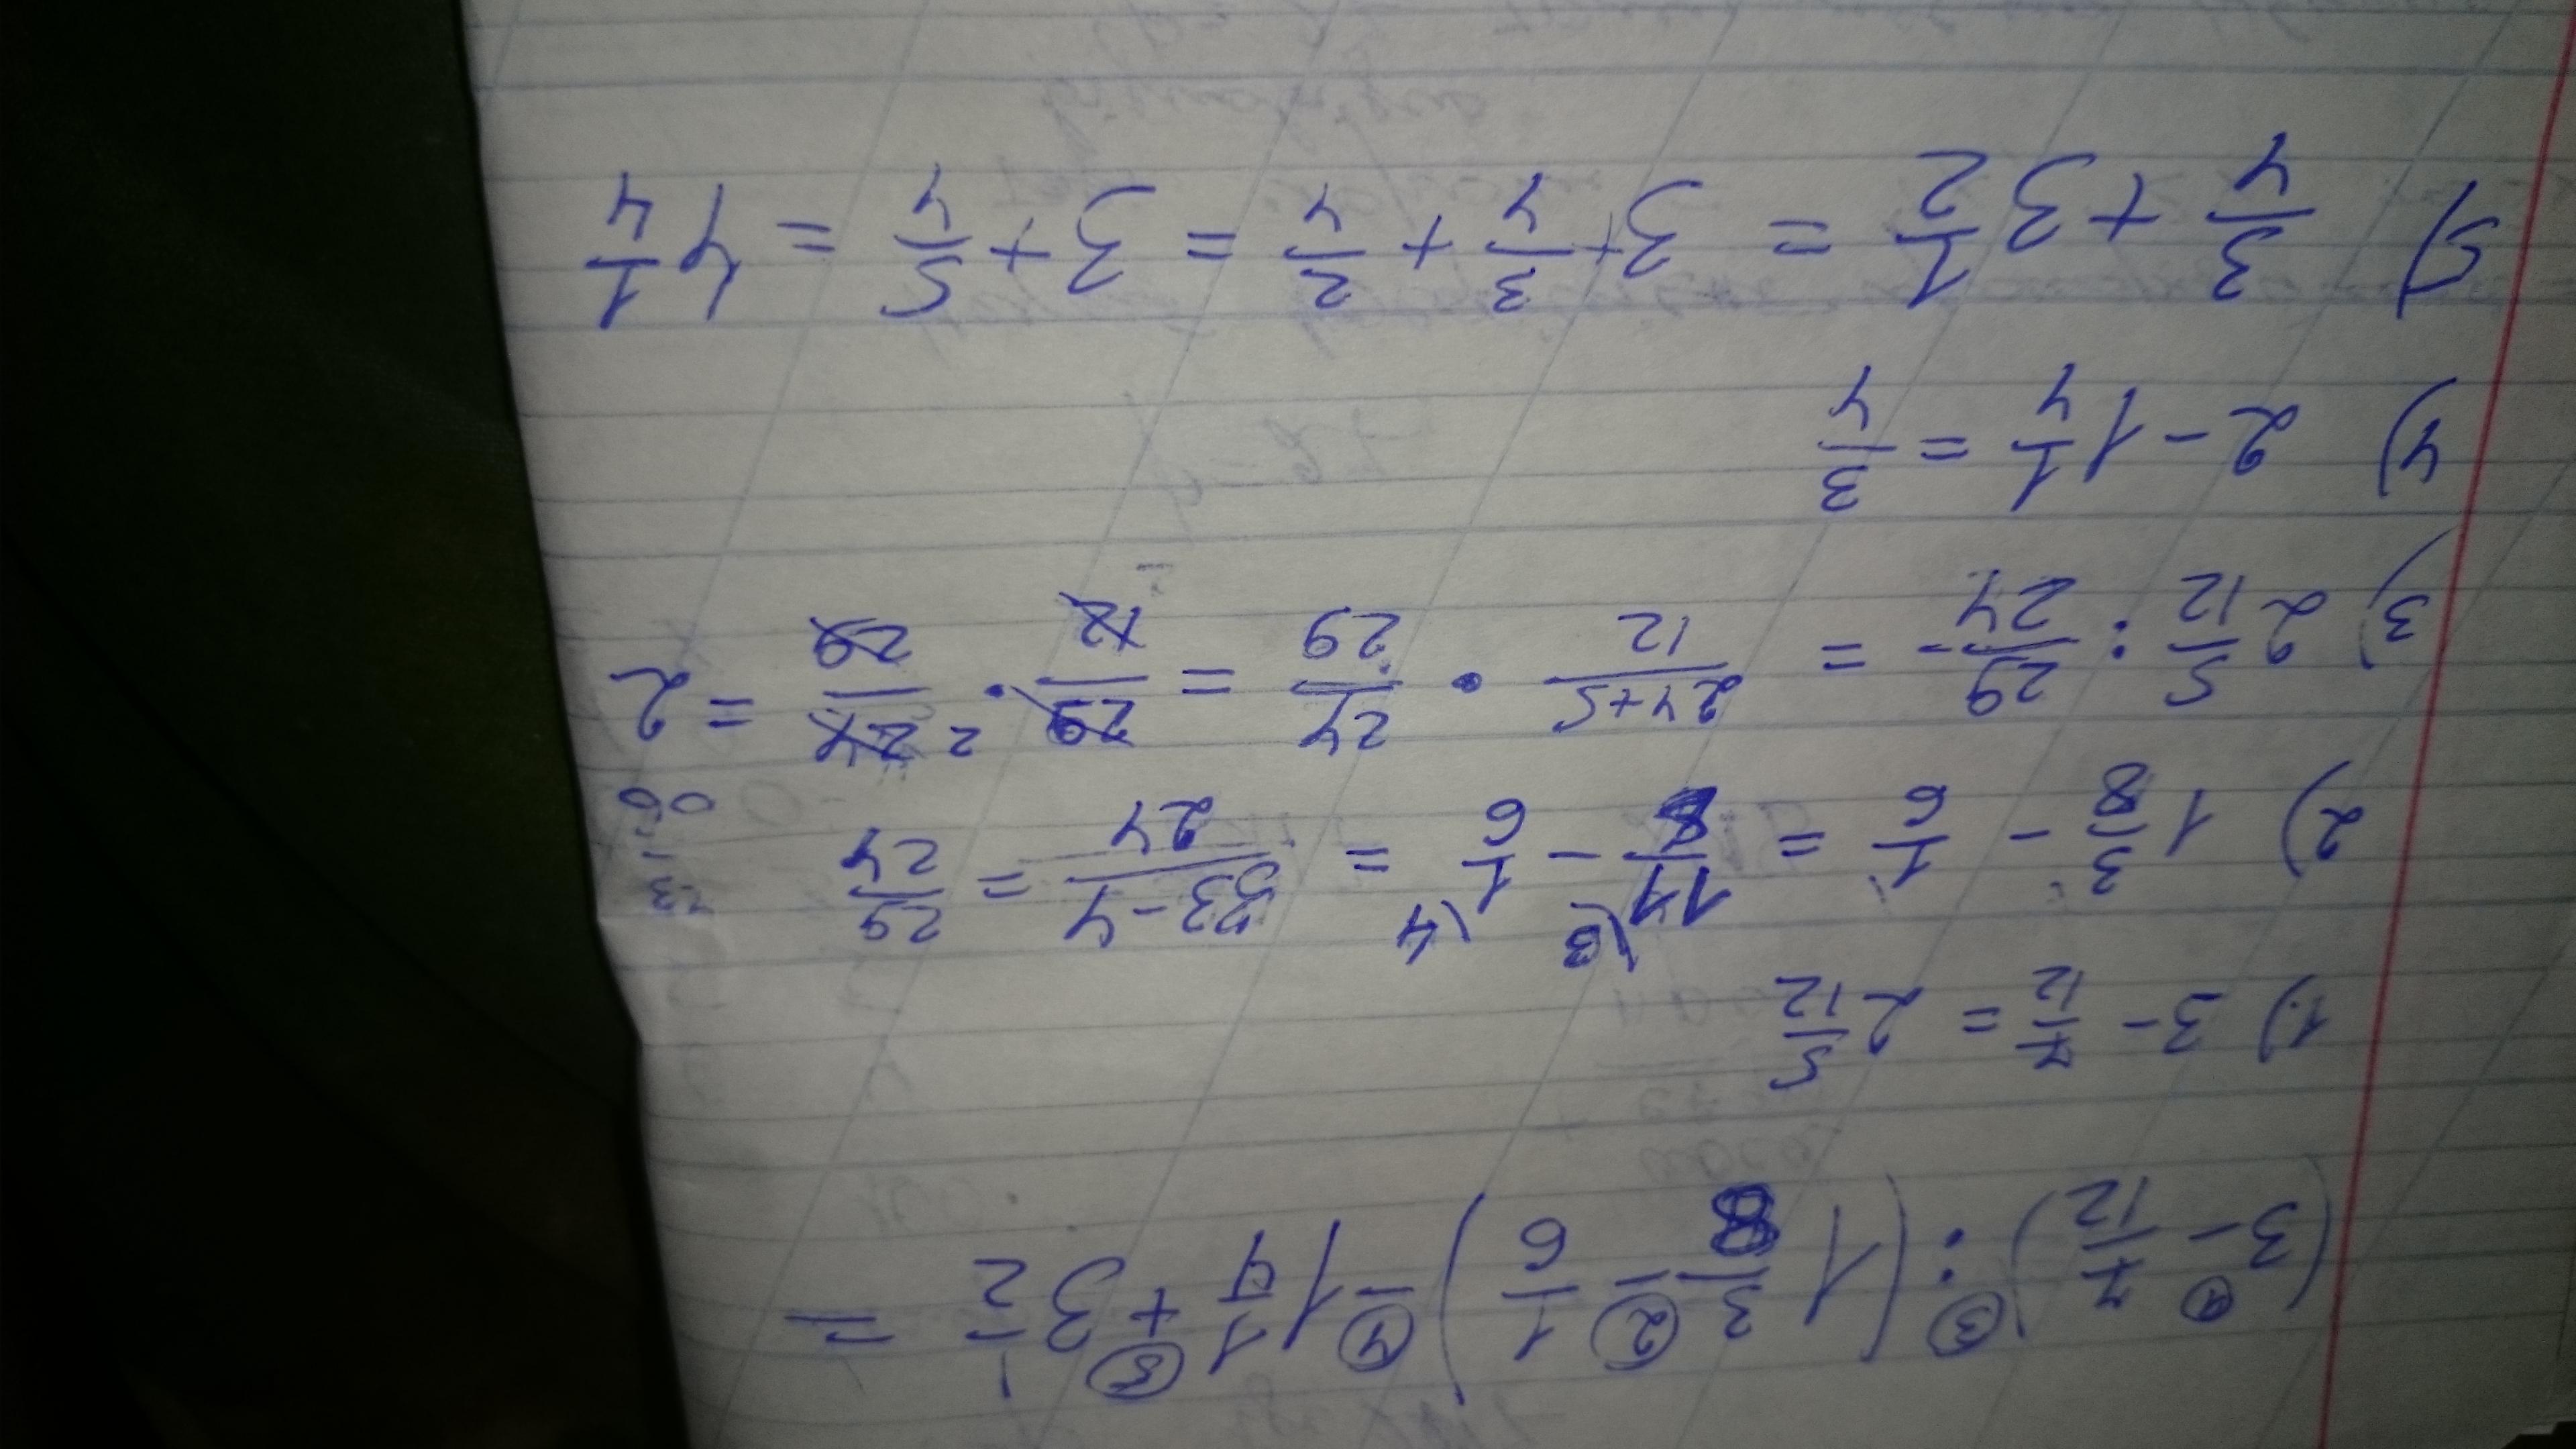 (3 - 7/12) : (1 3/8 - 1/6) - 1 1/4 + 3 1/2 =
1) 3 - 7/12 = 2 5/12
2) 1 3/8 - 1/6 = 11/8 - 1/6 = 33-4/24 = 29/24
3) 2 5/12 : 29/24 = 24+5/12 · 24/29 = 29/12 · 24/29 = 2
4) 2 - 1 1/4 = 3/4
5) 3/4 + 3 1/2 = 3 + 3/4 + 2/4 = 3 + 5/4 = 4 1/4